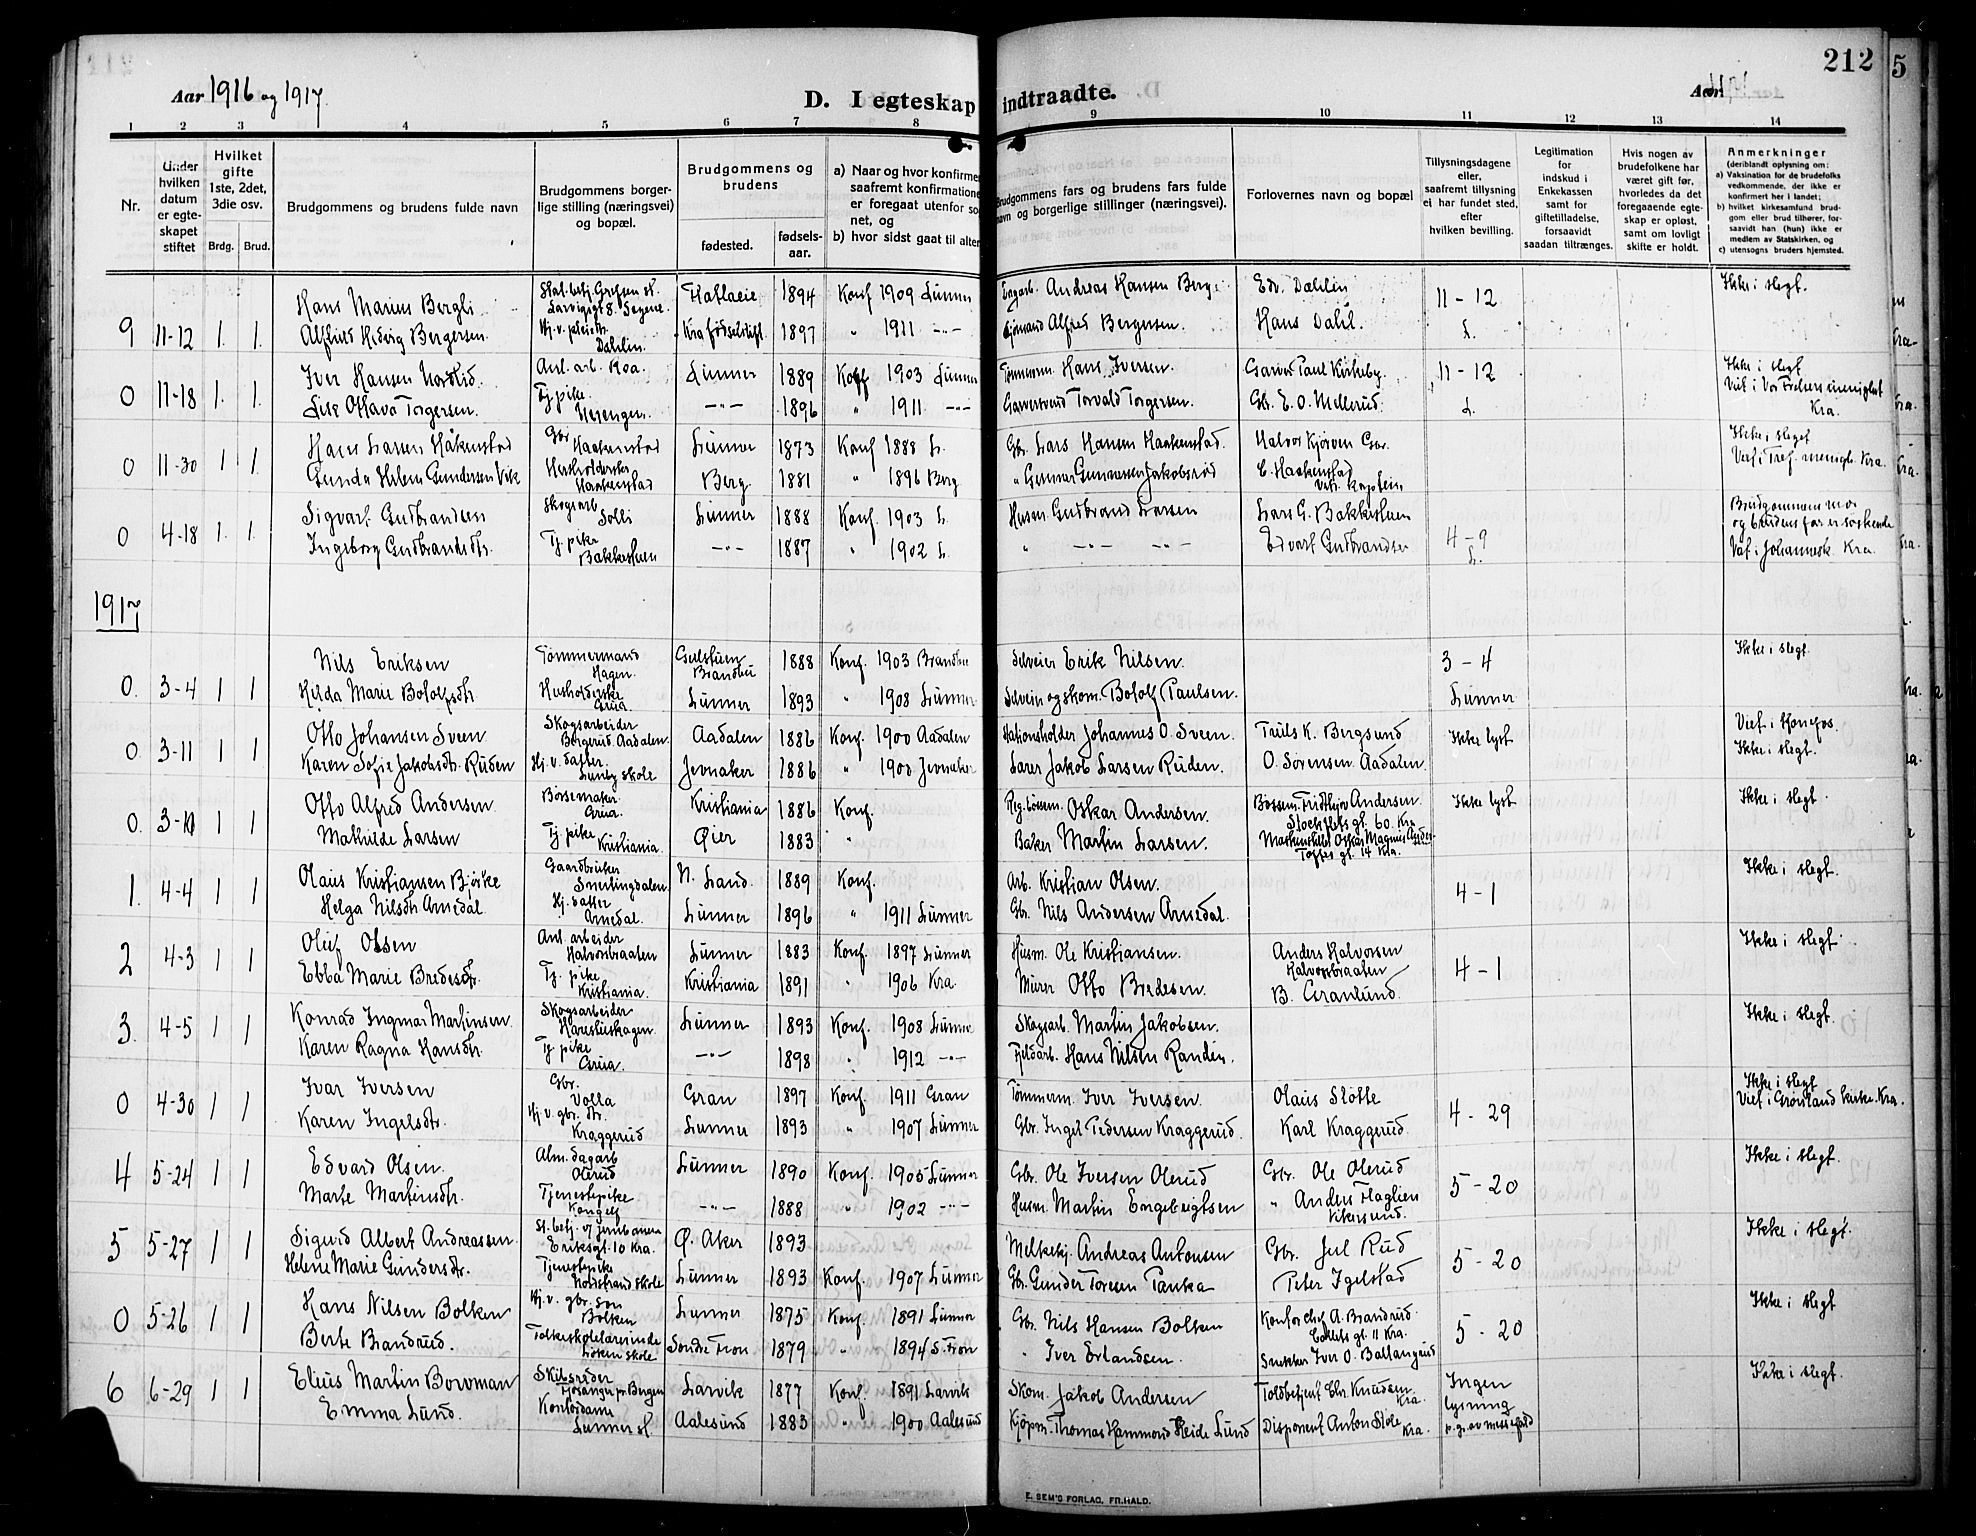 212
5
Aar 1916 og 1917.
D. I egteskap indtraadte.
Aar
1 2 3 4 5 6 7 8 9 10 11 12 13 14
Nr.
Under hvilken datum er egteskapet stiftet
Hvilket gifte 1ste, 2det, 3die osv.
Brdg. Brud.
Brudgommens og brudens fulde navn
Brudgommens borgerlige stilling (næringsvei) og bopæl.
Brudgommens og brudens
fødested.
fødselsaar.
a) Naar og hvor konfirmer
saafremt konfirmatione
er foregaat utenfor so
net, og
b) hvor sidst gaat til alter
Brudgommens fars og brudens fars fulde
navn og borgerlige stillinger (næringsvei).
Forlovernes navn og bopæl
Tillysningsdagene
eller,
saafremt tillysning
ei har fundet sted,
efter
hvilken bevilling.
Legitimation
for
indskud i
Enkekassen
samt for
giftetilladelse,
forsaavidt
saadan tiltrænges.
Hvis nogen av
brudefolkene har
været gift før,
hvorledes da det
foregaaende egte-
skap er opløst,
samt om lovligt
skifte er holdt.
Anmerkninger
(deriblandt oplysning om:
a) Vaksination for de brudefolks
vedkommende, der ikke er
konfirmert her i landet;
b) hvilket kirkesamfund brud-
gom eller brud tilhører, for-
saavidt han (hun) ikke er
medlem av Statskirken, og
c) utensogns bruders hjemsted.
Hans Marius Bergli 1894 Konf 1909 Lunner Andreas Hansen Berg Edv. Dahlin 11-12 Ikke i slegt.
9 11-12 1. 1. Hedvig Bergersen. Hj. v. Dahlin. Kra fødselstift 1897 " 1911 -"- Alfred Bergersen. Hans Dahl. L.
Iver Hansen Nordlid. Anl. arb. Roa. Lunner 1889 Konf 1903 Lunner Tømmerm. Hans Iversen. Garver Paul Kirkeby. 11-12 Ikke i slegt
0 11-18 1. 1. Torgersen. Tj. pike. -"- 1896 " 1911 -"- Torvald Torgersen. Gbr. E. O. Mellerud. L. Viet i Vor Frelsers menighet Kra.
Hans Larsen Håkenstad Gbr Haakenstad Lunner 1873 Konf 1888 L. Gbr. Lars Hansen Haakenstad Halvor Kjørven Gbr. Ikke i slegt
0 11-30 1 1. Gunda Helene Gundersen Vik Haakenstad Berg. 1881 " 1896 Berg " Gunnar Gunnarsen Jakobsrød C. Haakenstad Kaptein Viet i menigh. Kra.
Sigvart Gudbrandsen Skogsarb Solli Lunner 1888 Konf. 1903 L. Husm. Gudbrand Larsen Lars G. Bakkestuen Brudgommens mor
og brudens far er søskende
0 4-18 1. 1. Ingeborg Gudbrandsdtr. Tj. pike Bakkestuen -"- 1887 " 1902 L. " -"- -"- Edvart Gudbrandsen 4-9 L. Viet i Johannesk. Kra.
1917
Nils Eriksen Tømmermand Hagen. Brandbu 1888 Konf. 1903 Brandbu Selveier Erik Nilsen. 3-4 Ikke i slegt.
0. 3-4 1 1 Hilda Marie Botolfsdtr. Husholderske Grua. Lunner 1893 " 1908 Lunner Selveier og skom. Botolf Paulsen. Lunner
Otto Johansen Sveen Skogsarbeider Bergerud. Aadalen. Aadalen 1886 Konf. 1900 Aadalen Stationsholder Johannes O. Sveen. Truls K. Bergsund Ikke lyst Viet i Hønefos.
0. 3-11 1 1 Karen Sofie Jakobsdtr. Ruden Hj. v. datter. Lunby skole Jevnaker 1886 " 1900 Jevnaker Lærer Jakob Larsen Ruden. O. Sørensen Aadalen. Ikke i slegt.
Otto Alfred Andersen. Børsemaker. Grua. Kristiania 1886 Konf. Oskar Andersen. Bøssem. Fridthjov Andersen. Stockflets gt. 60. Kra Ikke lyst Ikke i slegt.
0. 3-10 1 1 Mathilde Larsen Tj. pike Kristiania. Øier 1883 " Baker Martin Larsen. Oskar Magnus Andersen Toftes gt. 14 Kra.
Olaus Kristiansen Bjørke Gaardbruker Snertingdalen. N. Land. 1889 Konf. Arb. Kristian Olsen. Ikke i slegt.
1. 4-4 1 1 Helga Nilsdtr Arnedal. Hj. datter Arnedal. Lunner 1896 " 1911 Lunner Gbr. Nils Andersen Arnedal. 4-1
Oluf Olsen Anl. arbeider Halvorsbraaten Lunner 1883 Konf. 1897 Lunner Husm. Ole Kristiansen. Anders Halvorsen Halvorsbraaten Ikke i slegt.
2 4-3 1 1 Ebba Marie Bredesdtr. Tj. pike Kristiania. Kristiania 1891 " 1906 Kra. Murer Otto Bredesen. B. Granlund. 4-1
Konrad Ingmar Martinsen. Skogsarbeider Harestuskogen. Lunner 1893 Konf. 1908 Lunner Skogsarb. Martin Jakobsen. Ikke i slegt.
3. 4-5 1 1 Karen Ragna Hansdtr. Tj. pike Grua. -"- 1898 " 1912 -"- Fjeldarb. Hans Nilsen Randen.
Ivar Iversen Gbr. Volla Gran 1897 Konf. 1911 Gran Tømmerm. Iver Iversen. Olaus Slotte Ikke i slegt
0 4-30 1 1 Karen Ingelsdtr. Hj. v. gbr. dtr. Kraggerud Lunner 1893 " 1907 Lunner Gbr. Ingel Pedersen Kraggerud. Karl Kraggerud. 4-29 Viet i Grønland kirke. Kra.
Edvard Olsen. Alm. dagarb Olerud Lunner 1890 Konf. 1905 Lunner Gbr. Ole Iversen Olerud Gbr. Ole Olerud Ikke i slegt.
4 5-24 1 1 Marte Martinsdtr. Tjenestepike -"- 1888 " 1902 -"- Husm. Martin Engebrigtsen " Anders Vikersund. 5-20
Sigurd Albert Andreassen. St. betj. v/ jernbanen Eriksgt. 10 Kra. Ø. Aker 1893 Melkekj. Andreas Antonsen Gbr. Jul Rud Ikke i slegt.
5 5-27 1 1 Helene Marie Gundersdtr. Tjenestepike Nordstrand skole Lunner 1893 Konf. 1907 Lunner Gbr. Gunder Toresen Tanka Peter Igelstad 5-20
Hans Nilsen Bolken Hj. v. gbr. søn Bolken Lunner 1875 Konf. 1891 Lunner Gbr. Nils Hansen Bolken Kontorchef A. Brandrud. gt. 11 Kra. Ikke i slegt
0 5-26 1 1 Berte Brandrud. Folkeskolelærerinde skole Søndre Fron 1879 " 1894 S. Fron " Iver Erlandsen. Snekker Iver O. Ballangrud 5-20
Elius Martin Bowman Skibsreder Fjøsanger pr. Bergen Larvik 1877 Konf. 1891 Larvik Skom. Jakob Andersen Toldbetjent Chr. Knudsen. Kra. Ingen Ikke i slegt.
6 6-29 1 1 Emma Lund. Kontordame Lunner st. Aalesund 1883 " 1900 Aalesund Kjøpm. Thomas Hammond Heide Lund Disponent Anton Stole Kra. lysning
E. SEM'S FORLAG, FR.HALD.